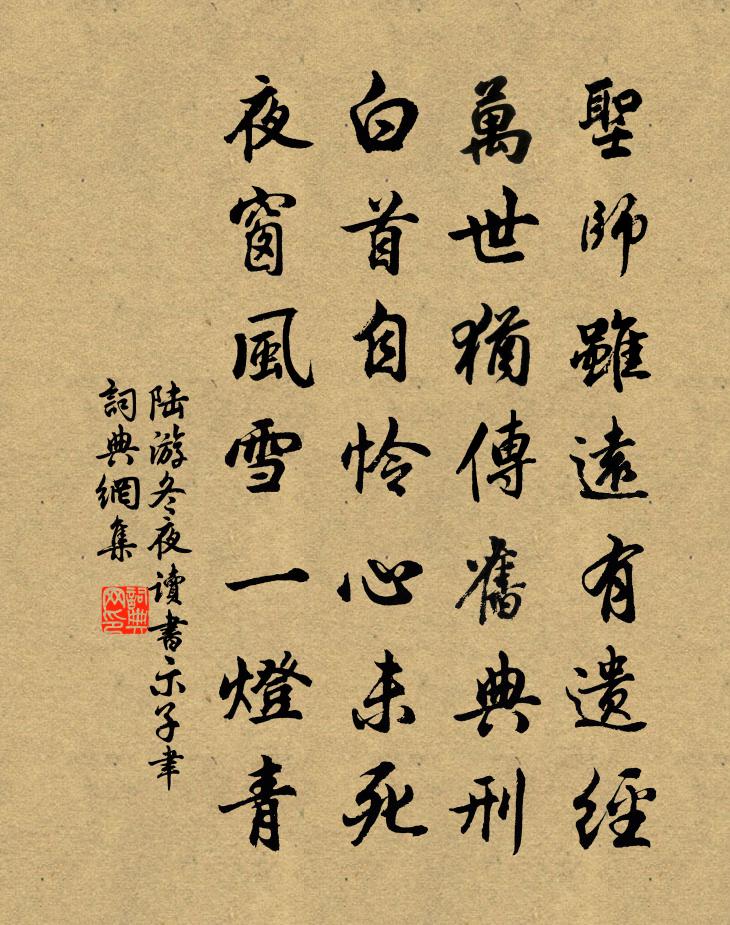 聖師雖遠有遺經
萬世猶傳舊典刑
白首自憐心未死
夜窗風雪一燈青
陆游冬夜读書示子聿
詞典網集
詞典网印